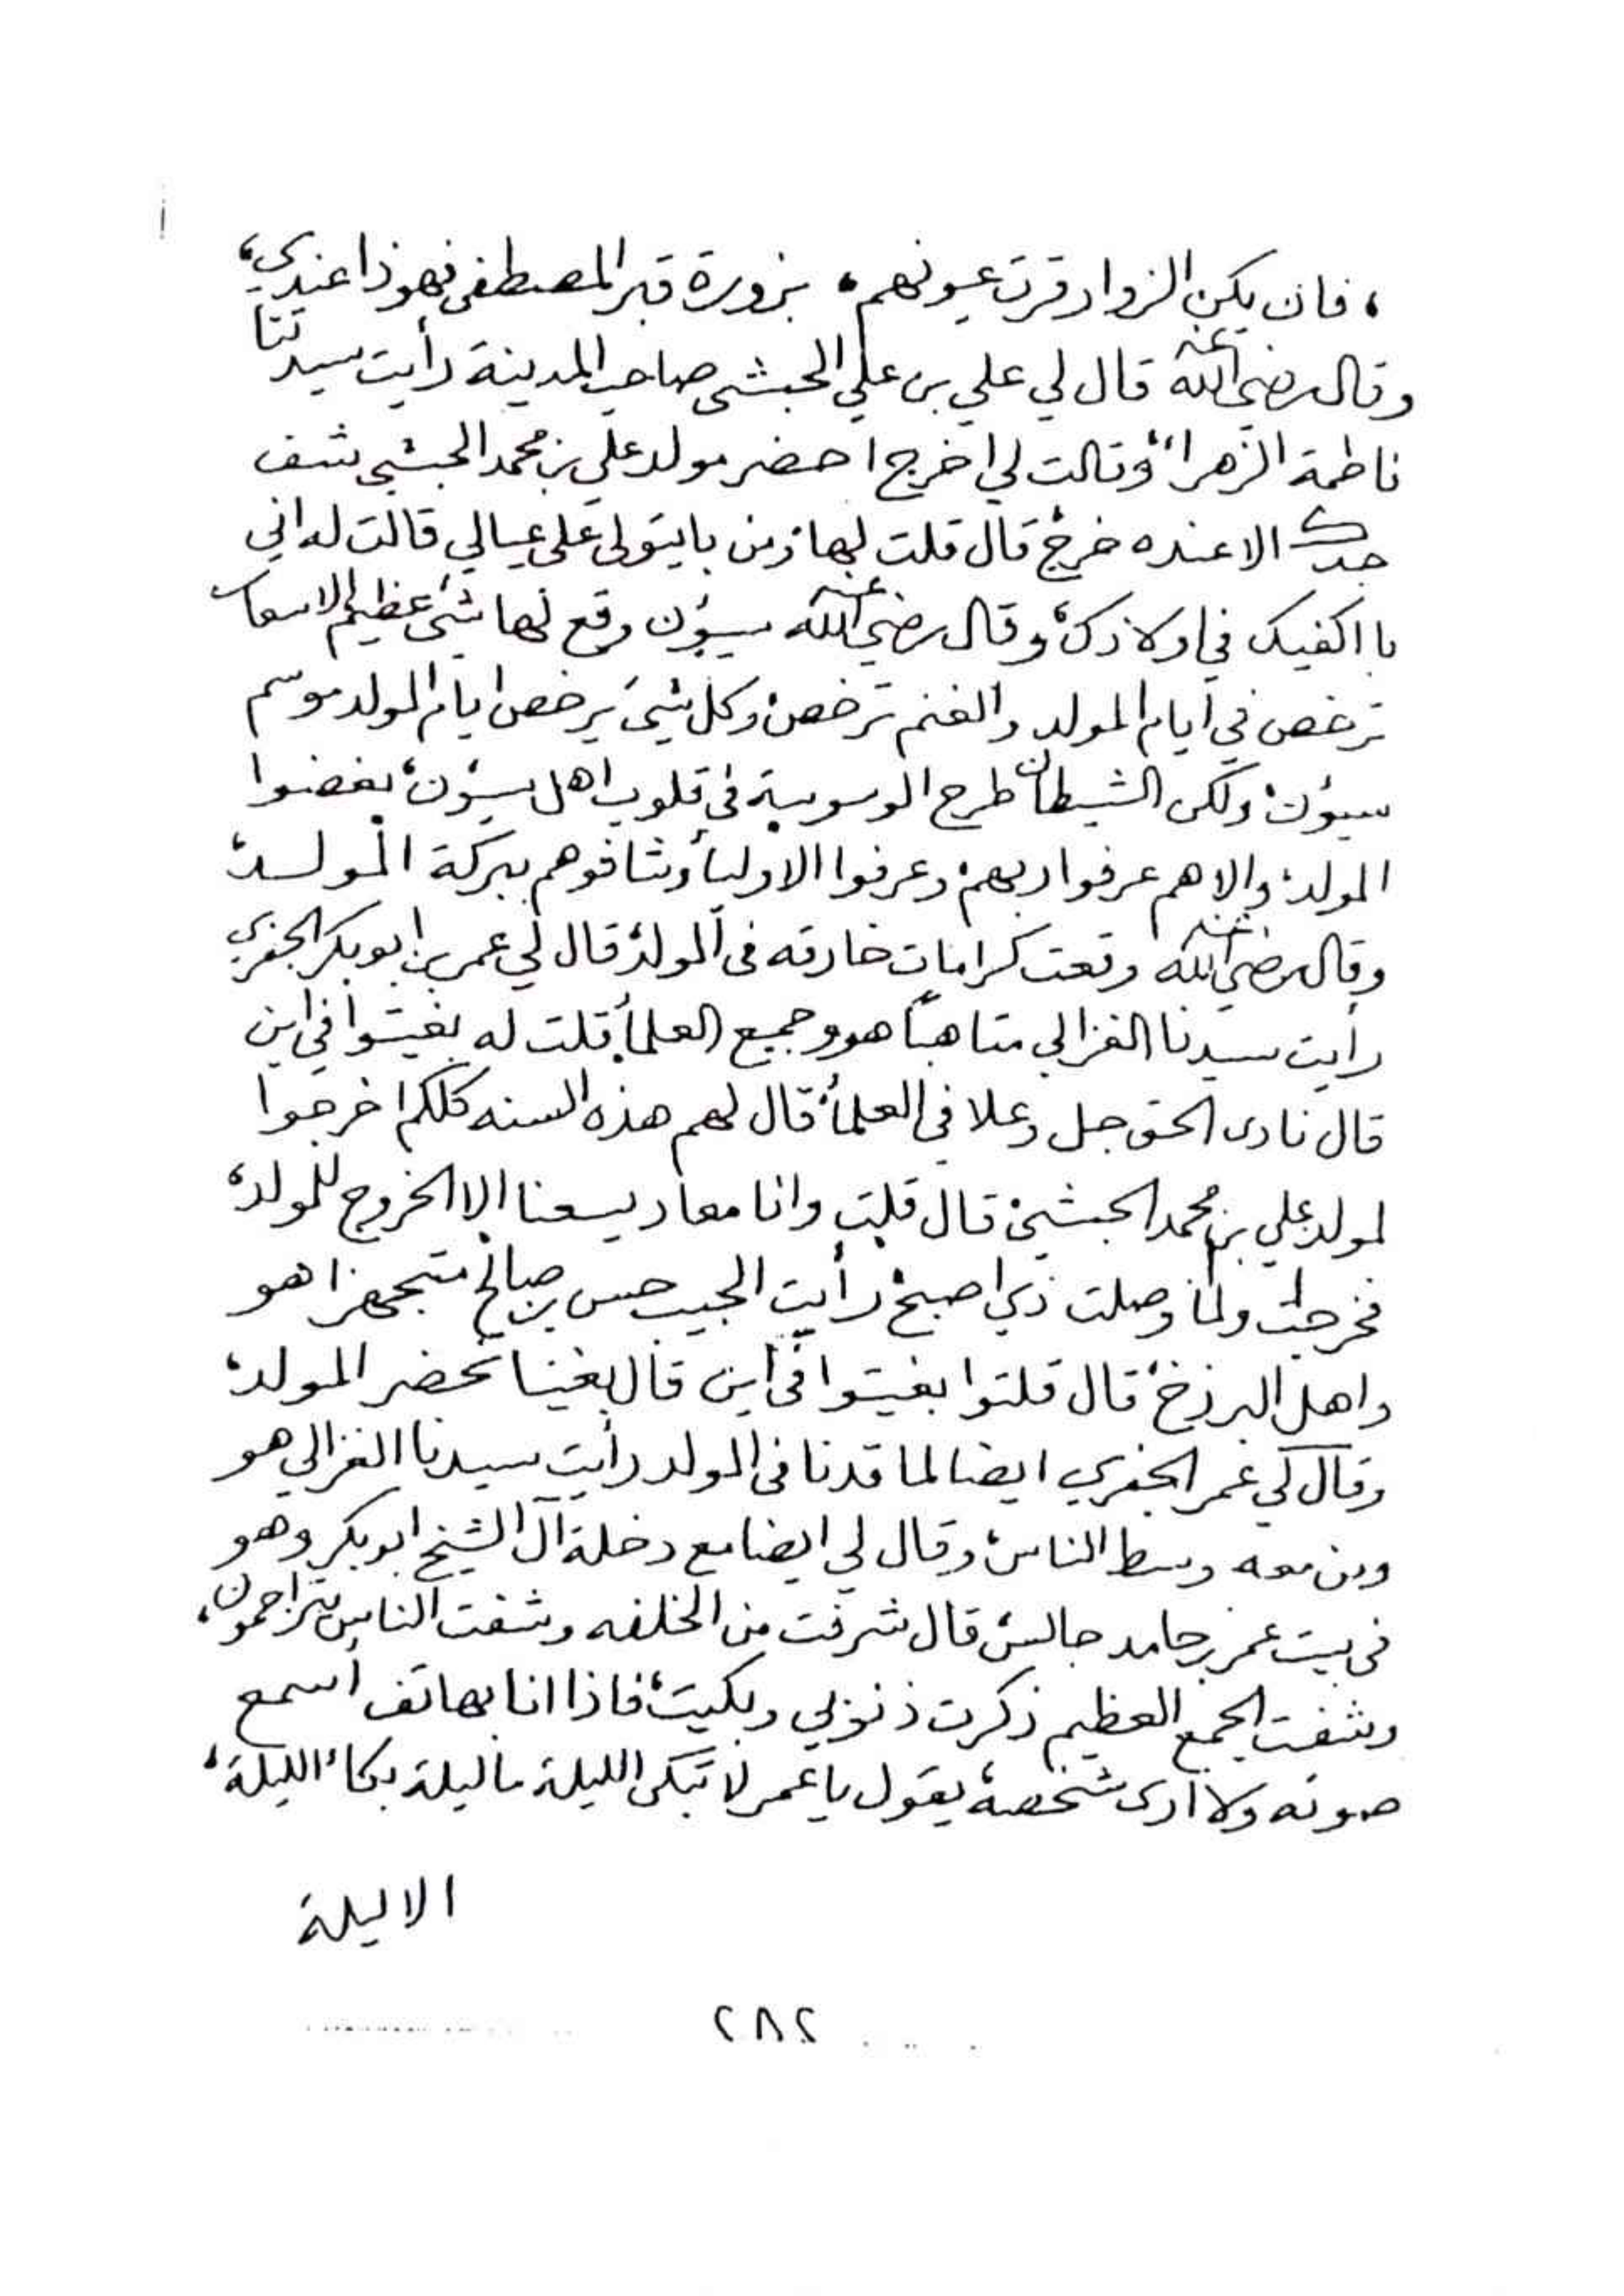 ، فان يكن الزوار قرت عيونهم ، بزورة قبر المصطفى فهو ذا عندي ،
وقال رضي الله عنه قال لي علي بن علي الحبشي صاحب المدينة رأيت سيدتنا
فاطمة الزهراء، وقالت لي اخرج احضر مولد علي بن محمد الحبشي شف
جدك الا عنده خرج، قال قلت لها ومن بايتولى على عيالي قالت له اني
با اكفيك في اولادك، وقال رضي الله عنه سيؤن وقع لها شئ عظيم الاسعار
ترخص في ايام المولد والغنم ترخص، وكل شيئ يرخص ايام المولد موسم
سيؤن، ولكن الشيطان طرح الوسوسة في قلوب اهل سيؤن، بغضوا
المولد، والا هم عرفوا ربهم، وعرفوا الاولياء وشافوهم ببركة المولد،
وقال رضي الله عنه وقعت كرامات خارقه في المولد، قال لي عمر بن ابوبكر الجفري
رأيت سيدنا الغزالي متاهباً هو وجميع العلماء، قلت له بغيتوا في اين
قال نادى الحق جل وعلا في العلماء، قال لهم هذه السنه كلكم اخرجوا
لمولد علي بن محمد الحبشي، قال قلت وانا معاد يسعنا الا الخروج للمولد،
فخرجت ولما وصلت ذي اصبح، رأيت الحبيب حسن بن صالح متجهزا هو
واهل البرزخ، قال قلتوا بغيتوا في اين قال بغينا نحضر المولد،
وقال لي عمر الجفري ايضا لما قدنا في المولد رأيت سيدنا الغزالي هو
ومن معه وسط الناس، وقال لي ايضا مع دخلة آل الشيخ ابوبكر وهو
في بيت عمر بن حامد جالس، قال شرفت من الخلفه وشفت الناس يتزاحمون،
وشفت الجمع العظيم ذكرت ذنوبي وبكيت، فاذا انا بهاتف اسمع
صوته ولا ارى شخصه، يقول يا عمر لا تبكي الليلة ما ليلة بكاء الليلة،
الا ليلة
٢٨٢